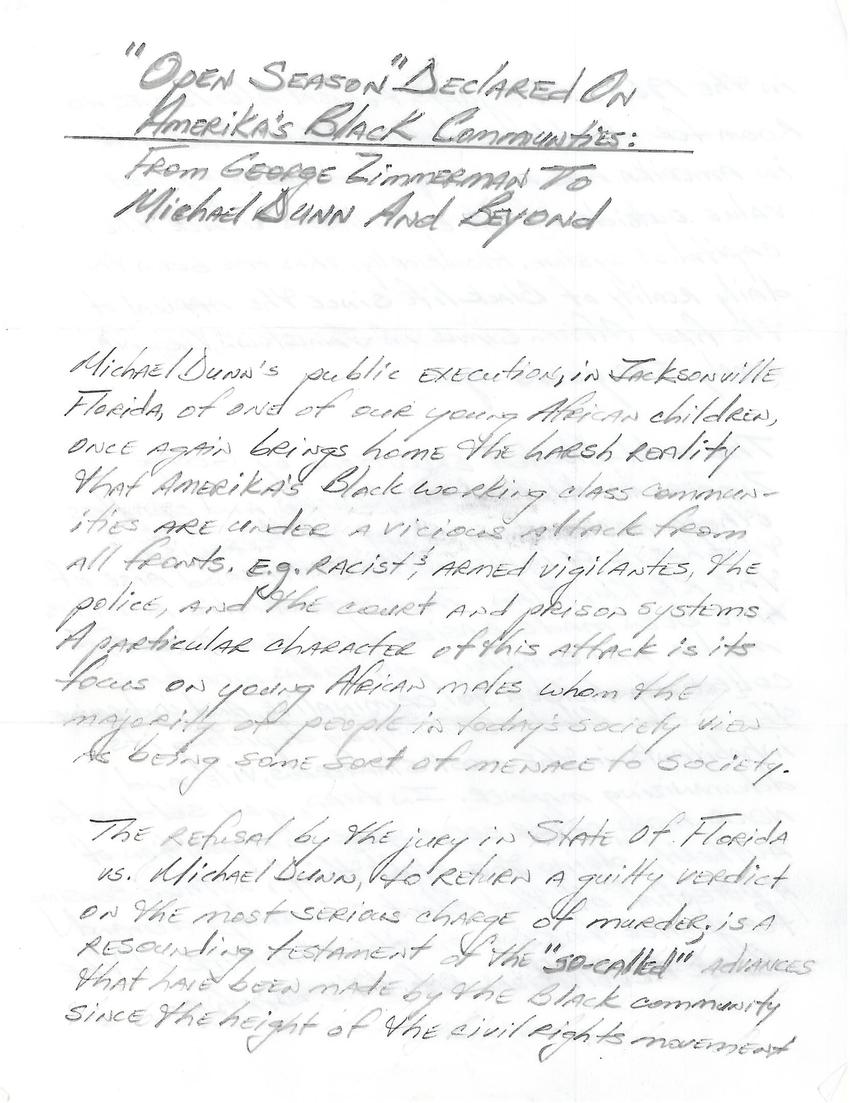 "Open Season" Declared On
Amerika's Black Communties:
From George Zimmerman To
Michael Dunn And Beyond
Michael Dunn's public execution, in Jacksonville
Florida, of one of our young African children,
once again brings home the harsh reality
that Amerika's Black working class commun-
ities are under a vicious attack from
all fronts. E.g. racist &, armed vigilantes, the
police, and the court and prison systems.
A particular character of this attack is its
focus on young African males whom the
majority of people in today's society view
as being some sort of menace to society.
The refusal by the jury in State of Florida
vs. Michael Dunn, to return a guilty verdict
on the most serious charge of murder, is a
resounding testament of the "so-called" advances
that have been made by the Black community
since the height of the civil rights movement